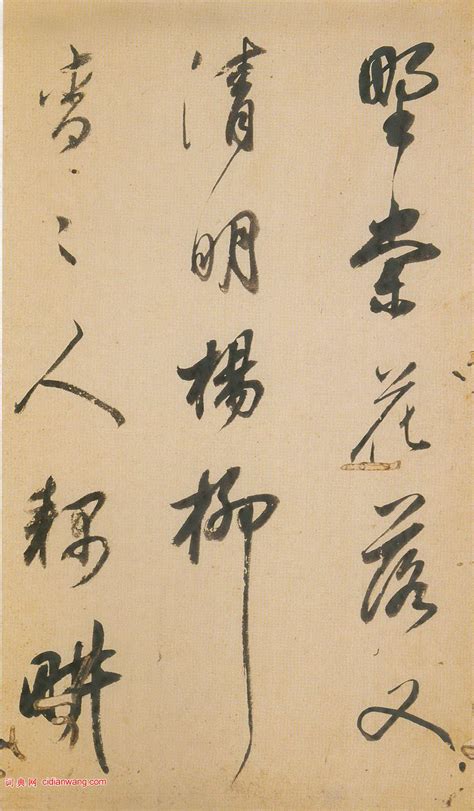 野棠花落又
清明楊柳
青〻人耦畊
词典网 cidianwang.com